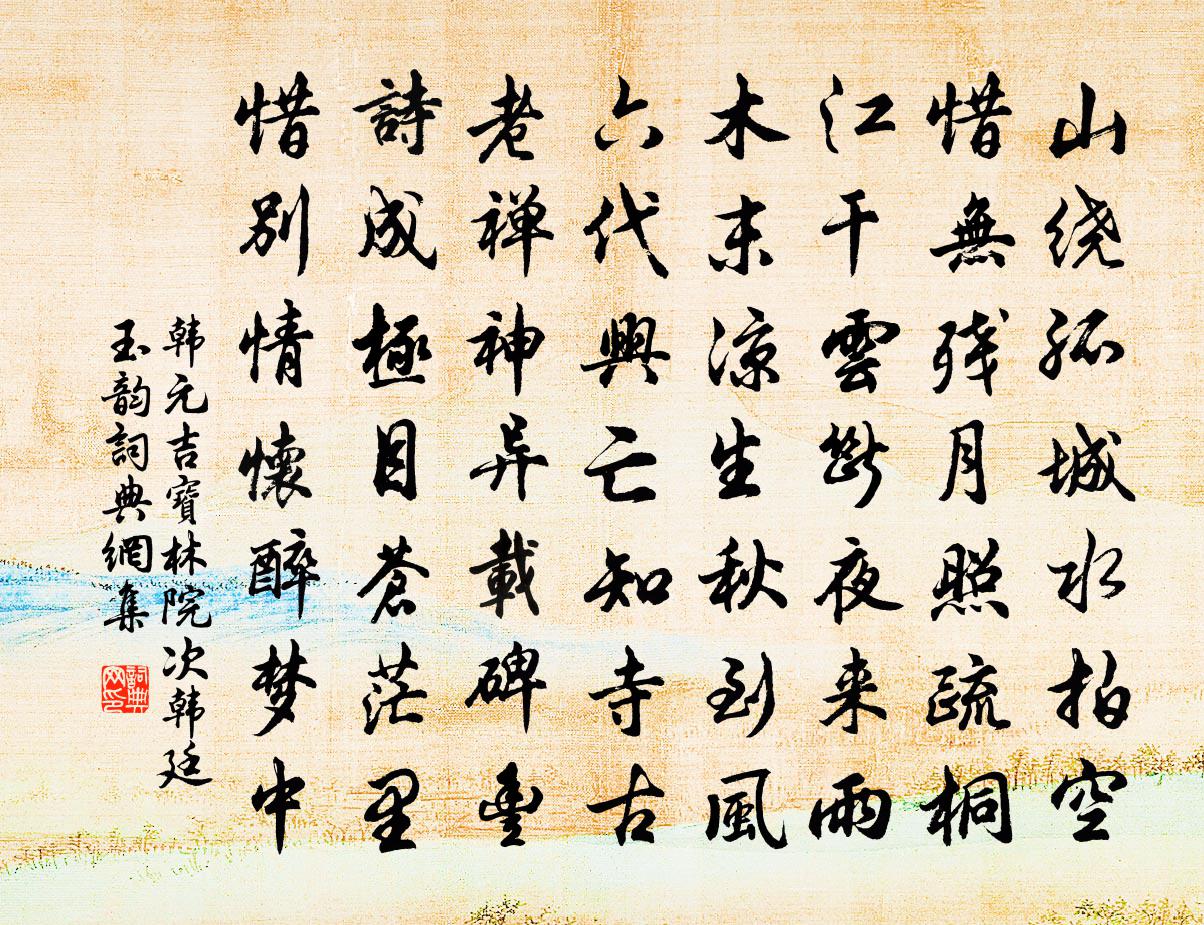 山绕孤城水拍空
惜無残月照疏桐
江干雲断夜来雨
木末凉生秋到風
六代興亡知寺古
老禅神异載碑豊
詩成極目蒼茫里
惜别情懷醉梦中
韩元吉寶林院次韩廷
玉韵詞典網集
詞典網印